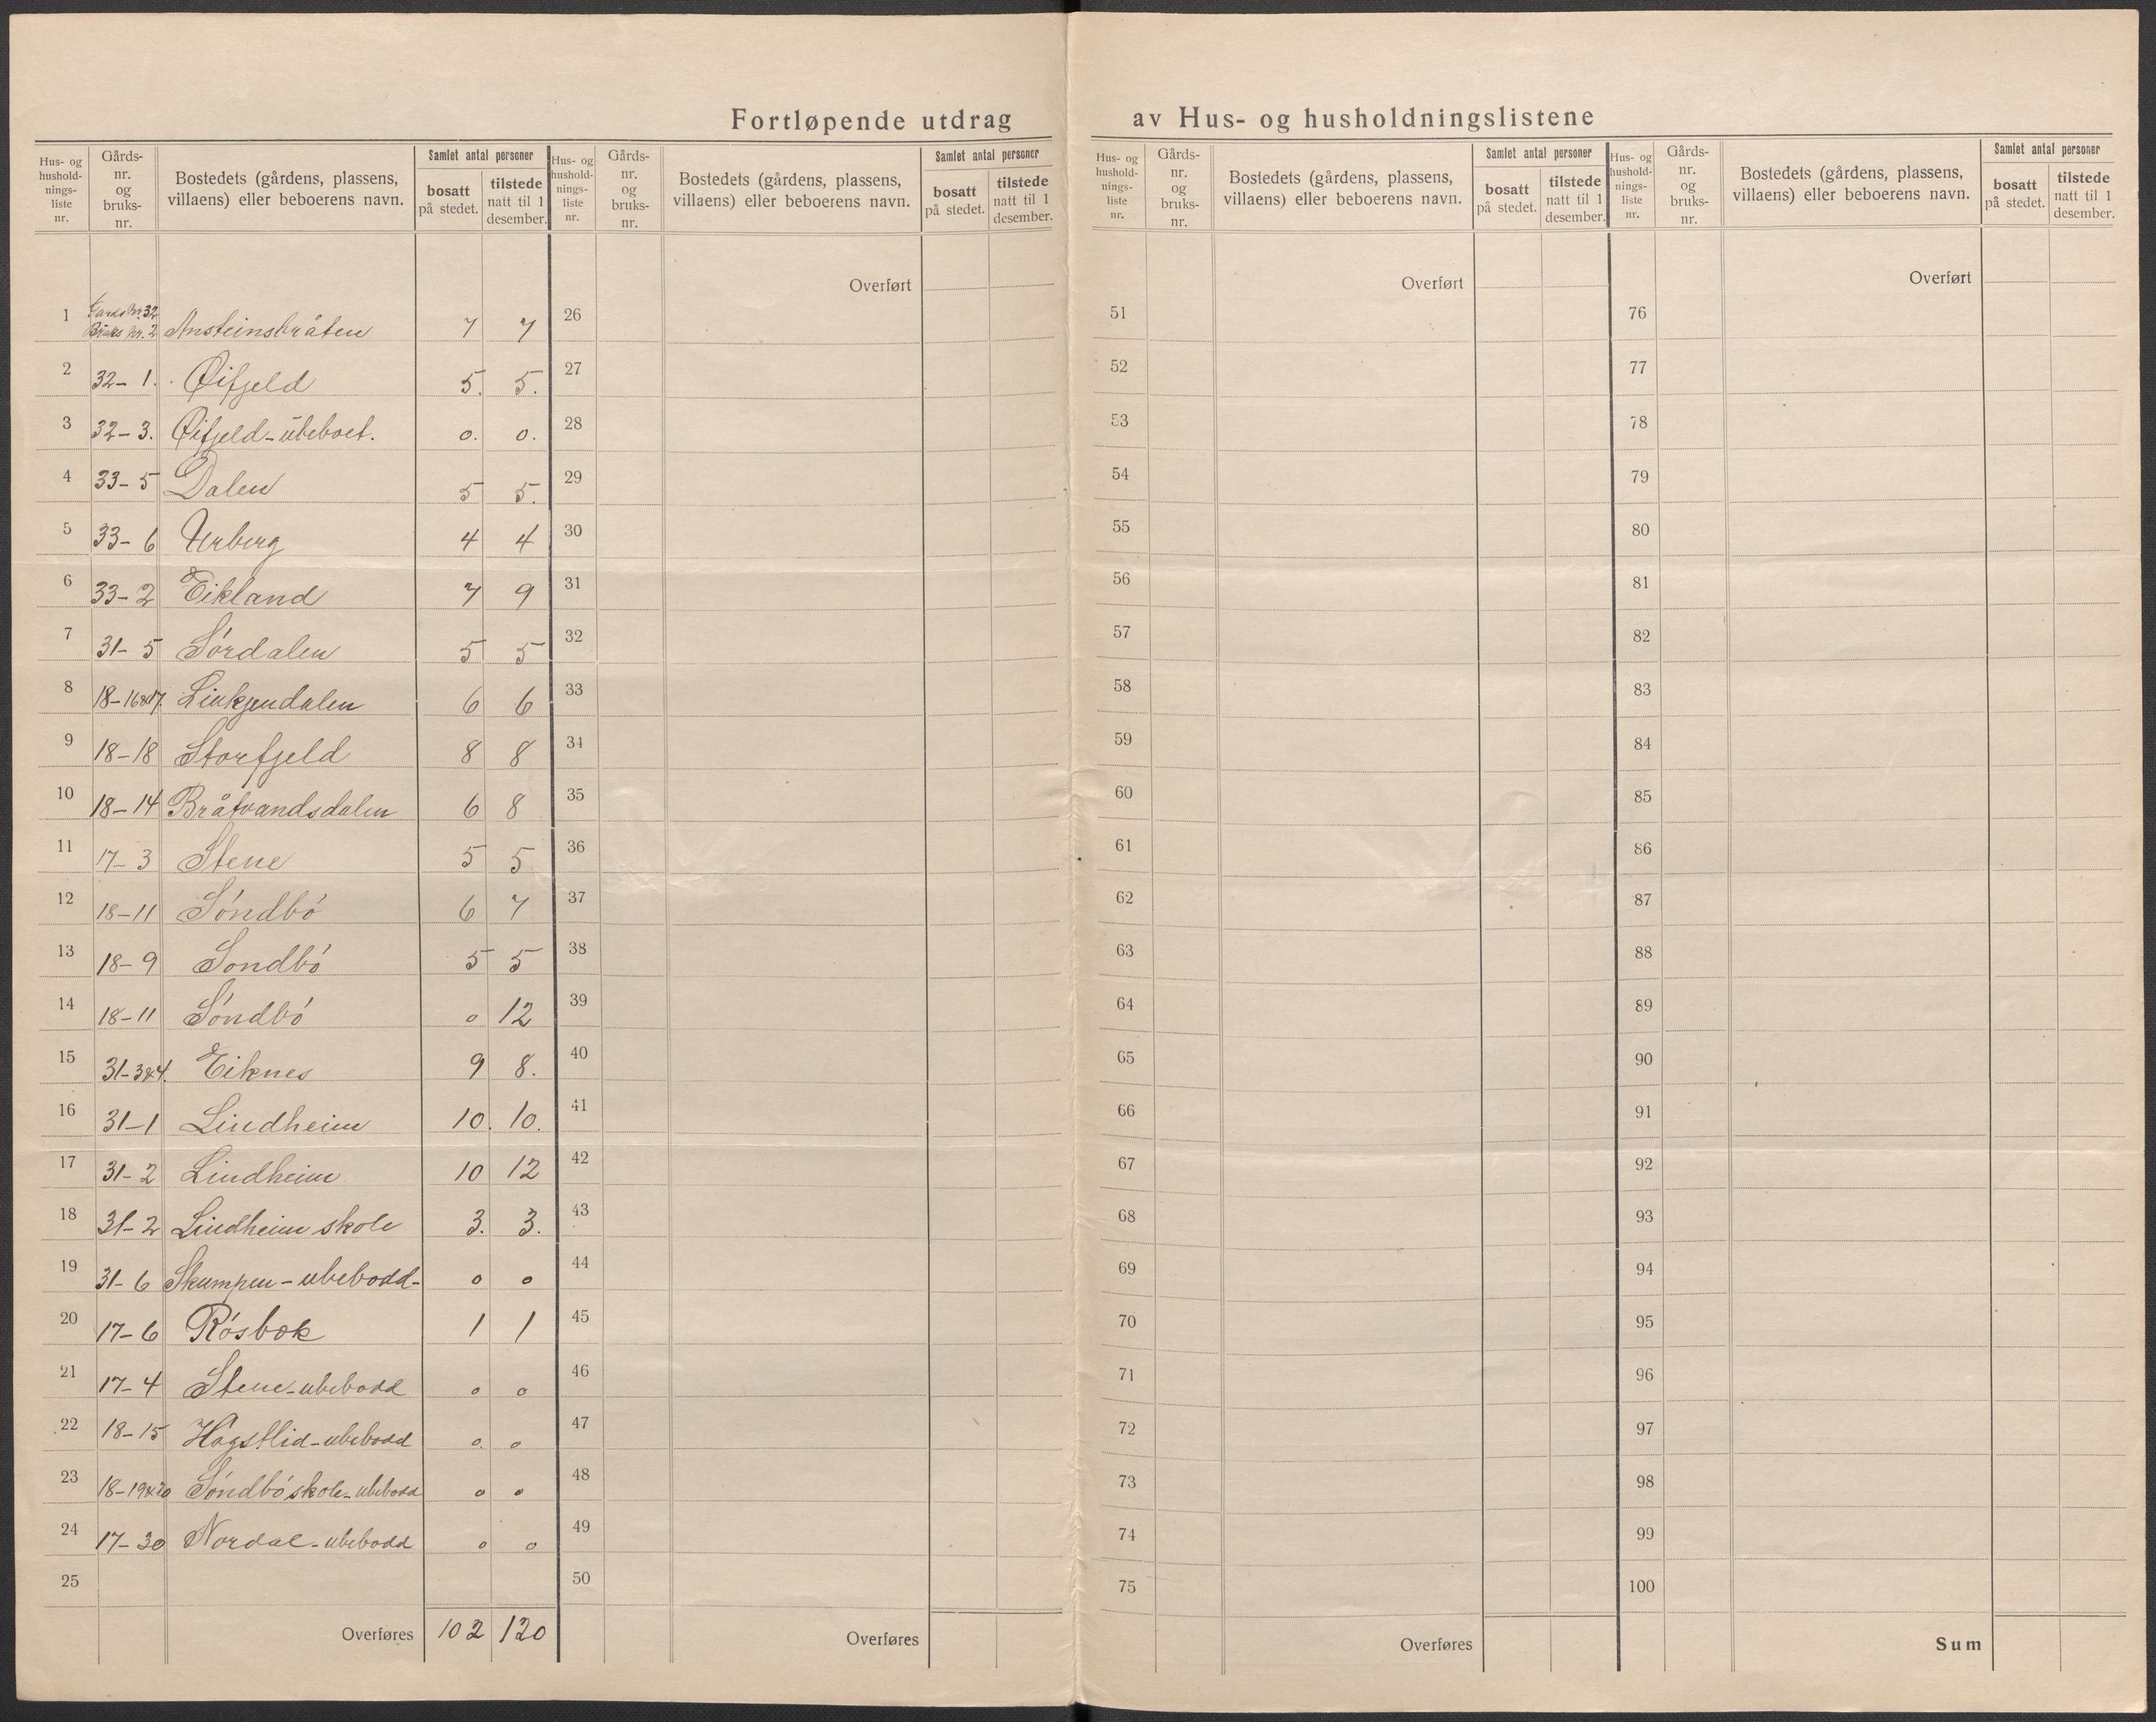 Fortløpende utdrag av Hus- og husholdningslistene
Hus- og hushold-nings-liste nr. | Gårds-nr. og bruks-nr. | Bostedets (gårdens, plassens, villaens) eller beboerens navn. | Samlet antal personer | bosatt på stedet. | tilstede natt til 1 desember.
Hus- og hushold-nings-liste nr. | Gårds-nr. og bruks-nr. | Bostedets (gårdens, plassens, villaens) eller beboerens navn. | Samlet antal personer | bosatt på stedet. | tilstede natt til 1 desember.
Hus- og hushold-nings-liste nr. | Gårds-nr. og bruks-nr. | Bostedets (gårdens, plassens, villaens) eller beboerens navn. | Samlet antal personer | bosatt på stedet. | tilstede natt til 1 desember.
Hus- og hushold-nings-liste nr. | Gårds-nr. og bruks-nr. | Bostedets (gårdens, plassens, villaens) eller beboerens navn. | Samlet antal personer | bosatt på stedet. | tilstede natt til 1 desember.
Overført Overført Overført
1 Gards Nr. 32 Bruks Nr. 2 Ansteinsbråten 7 7 26 51 76
2 32-1. Øifjeld 5. 5. 27 52 77
3 32-3. Øifjeld-ubeboet. 0. 0. 28 53 78
4 33-5 Dalen 5 5. 29 54 79
5 33-6 Urberg 4 4 30 55 80
6 33-2 Eikland 7 9 31 56 81
7 31-5 Sørdalen 5 5 32 57 82
8 18-16&17. Linkjendalen 6 6 33 58 83
9 18-18 Storfjeld 8 8 34 59 84
10 18-14 Bråtvandsdalen 6 8 35 60 85
11 17-3 Stene 5 5 36 61 86
12 18-11 Søndbø 6 7 37 62 87
13 18-9 Søndbø 5 5 38 63 88
14 18-11 Søndbø 0 12 39 64 89
15 31-3&4. Eiknes 9 8. 40 65 90
16 31-1 Lindheim 10. 10. 41 66 91
17 31-2 Lindheim 10 12 42 67 92
18 31-2 Lindheim skole 3. 3. 43 68 93
19 31-6 Skumpen-ubebodd- 0 0 44 69 94
20 17-6 Røsbæk 1 1 45 70 95
21 17-4 Stene-ubebodd 0 0 46 71 96
22 18-15 Høgstlid-ubebodd 0. 0 47 72 97
23 18-19&20 Søndbø skole-ubebodd 0 0 48 73 98
24 17-30 Nordal-ubebodd 0 0 49 74 99
25 50 75 100
Overføres 102 120 Overføres Overføres Sum